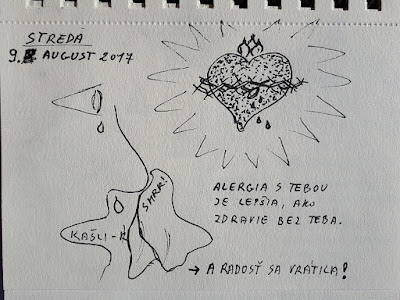 STREDA
9. AUGUST 2017
SMRK!
KAŠLI-K
ALERGIA S TEBOU
JE LEPŠIA, AKO
ZDRAVIE BEZ TEBA.
→ A RADOSŤ SA VRÁTILA!